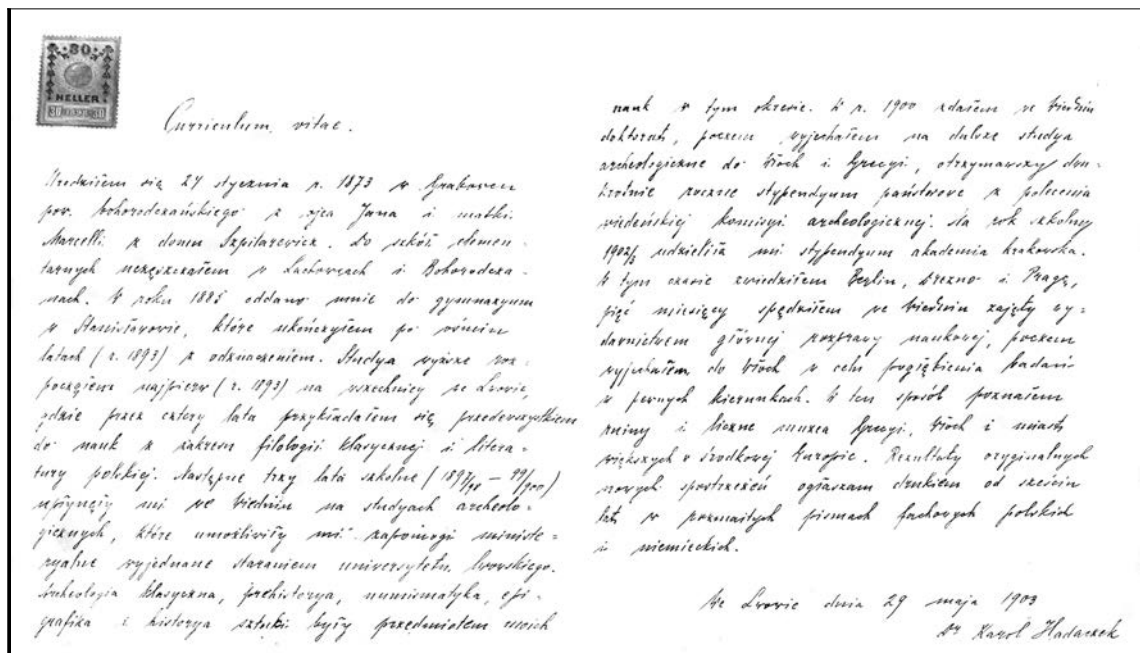 30
HELLER
Curriculum vitae.
Urodziłem się 24 stycznia r. 1873 w Grabowcu
pow. bohorodczańskiego z ojca Jana i matki
Marcelli z domu Szpilarewicz. Do szkół elemen-
tarnych uczęszczałem w Lachowcach i Bohorodcza-
nach. W roku 1885 oddano mnie do gymnazyum
w Stanisławowie, które ukończyłem po ośmiu
latach (r. 1893) z odznaczeniem. Studya wyższe roz-
począłem najpierw (r. 1893) na wszechnicy we Lwowie,
gdzie przez cztery lata przykładałem się przedewszystkiem
do nauk z zakresu filologii klasycznej i litera-
tury polskiej. Następne trzy lata szkolne (1897/98 – 99/900)
upłynęły mi we Wiedniu na studyach archeolo-
gicznych, które umożliwiły mi zapomogi ministe-
ryalne wyjednane staraniem uniwersytetu lwowskiego.
Archeologia klasyczna, prehistorya, numizmatyka, epi-
grafika i historya sztuki były przedmiotem moich
nauk w tym okresie. W r. 1900 zdałem we Wiedniu
doktorat, poczem wyjechałem na dalsze studya
archeologiczne do Włoch i Grecyi, otrzymawszy dwu-
krotnie roczne stypendyum państwowe z polecenia
wiedeńskiej komisyi archeologicznej. Na rok szkolny
1902/3 udzieliła mi stypendyum akademia krakowska.
W tym czasie zwiedziłem Berlin, Drezno i Pragę,
pięć miesięcy spędziłem we Wiedniu zajęty wy-
dawnictwem głównej rozprawy naukowej, poczem
wyjechałem do Włoch w celu pogłębienia badań
w pewnych kierunkach. W ten sposób poznałem
ruiny i liczne muzea Grecyi, Włoch i miast
większych w środkowej Europie. Rezultaty oryginalnych
nowych spostrzeżeń ogłaszam drukiem od sześciu
lat w rozmaitych pismach fachowych polskich
i niemieckich.
We Lwowie dnia 29 maja 1903
Dr Karol Hadaczek